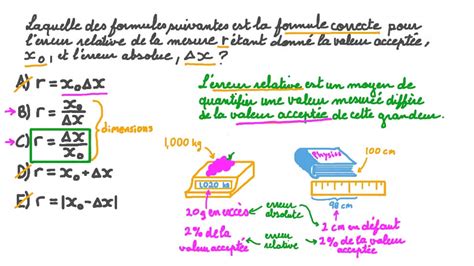 Laquelle des formules suivantes est la formule correcte pour
l'erreur relative de la mesure r étant donné la valeur acceptée,
x₀, et l'erreur absolue, Δx ?
A) r = x₀Δx
B) r = x₀/Δx
C) r = Δx/x₀
dimensions
D) r = x₀ + Δx
E) r = |x₀ - Δx|
L'erreur relative est un moyen de
quantifier une valeur mesurée diffère
de la valeur acceptée de cette grandeur.
1,000 kg
1,020 kg
20g en excès
2% de la
valeur acceptée
erreur
absolute
erreur
relative
Physics
100 cm
98 cm
2 cm en défaut
2% de la valeur
acceptée